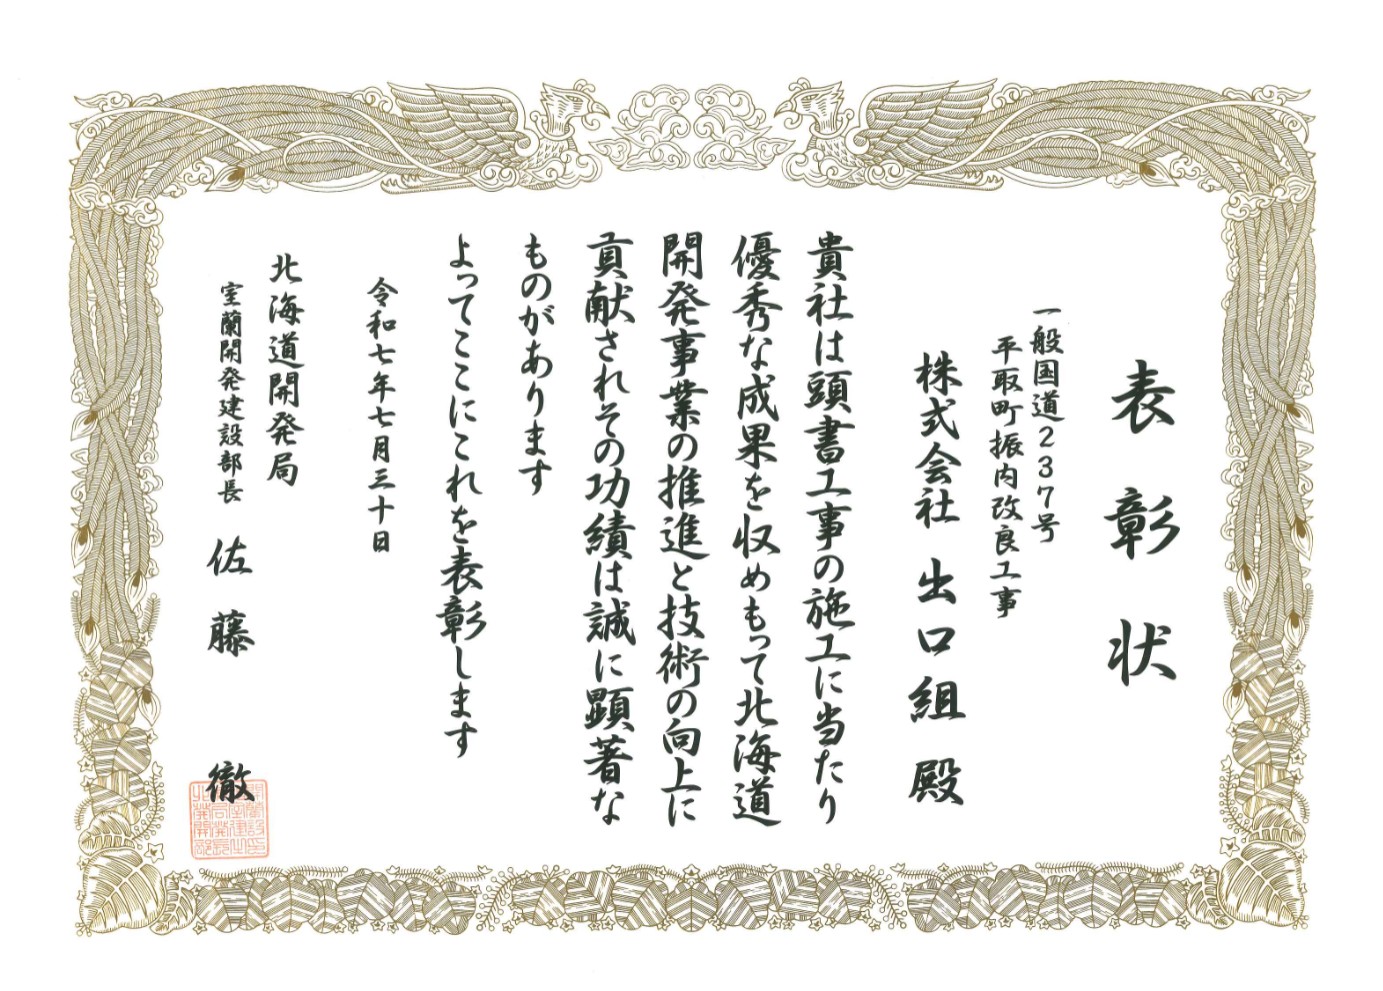 表彰状
一般国道２３７号
平取町振内改良工事
株式会社 出口組 殿
貴社は頭書工事の施工に当たり
優秀な成果を収めもって北海道
開発事業の推進と技術の向上に
貢献されその功績は誠に顕著な
ものがあります
よってここにこれを表彰します
令和七年七月三十日
北海道開発局
室蘭開発建設部長 佐藤 徹